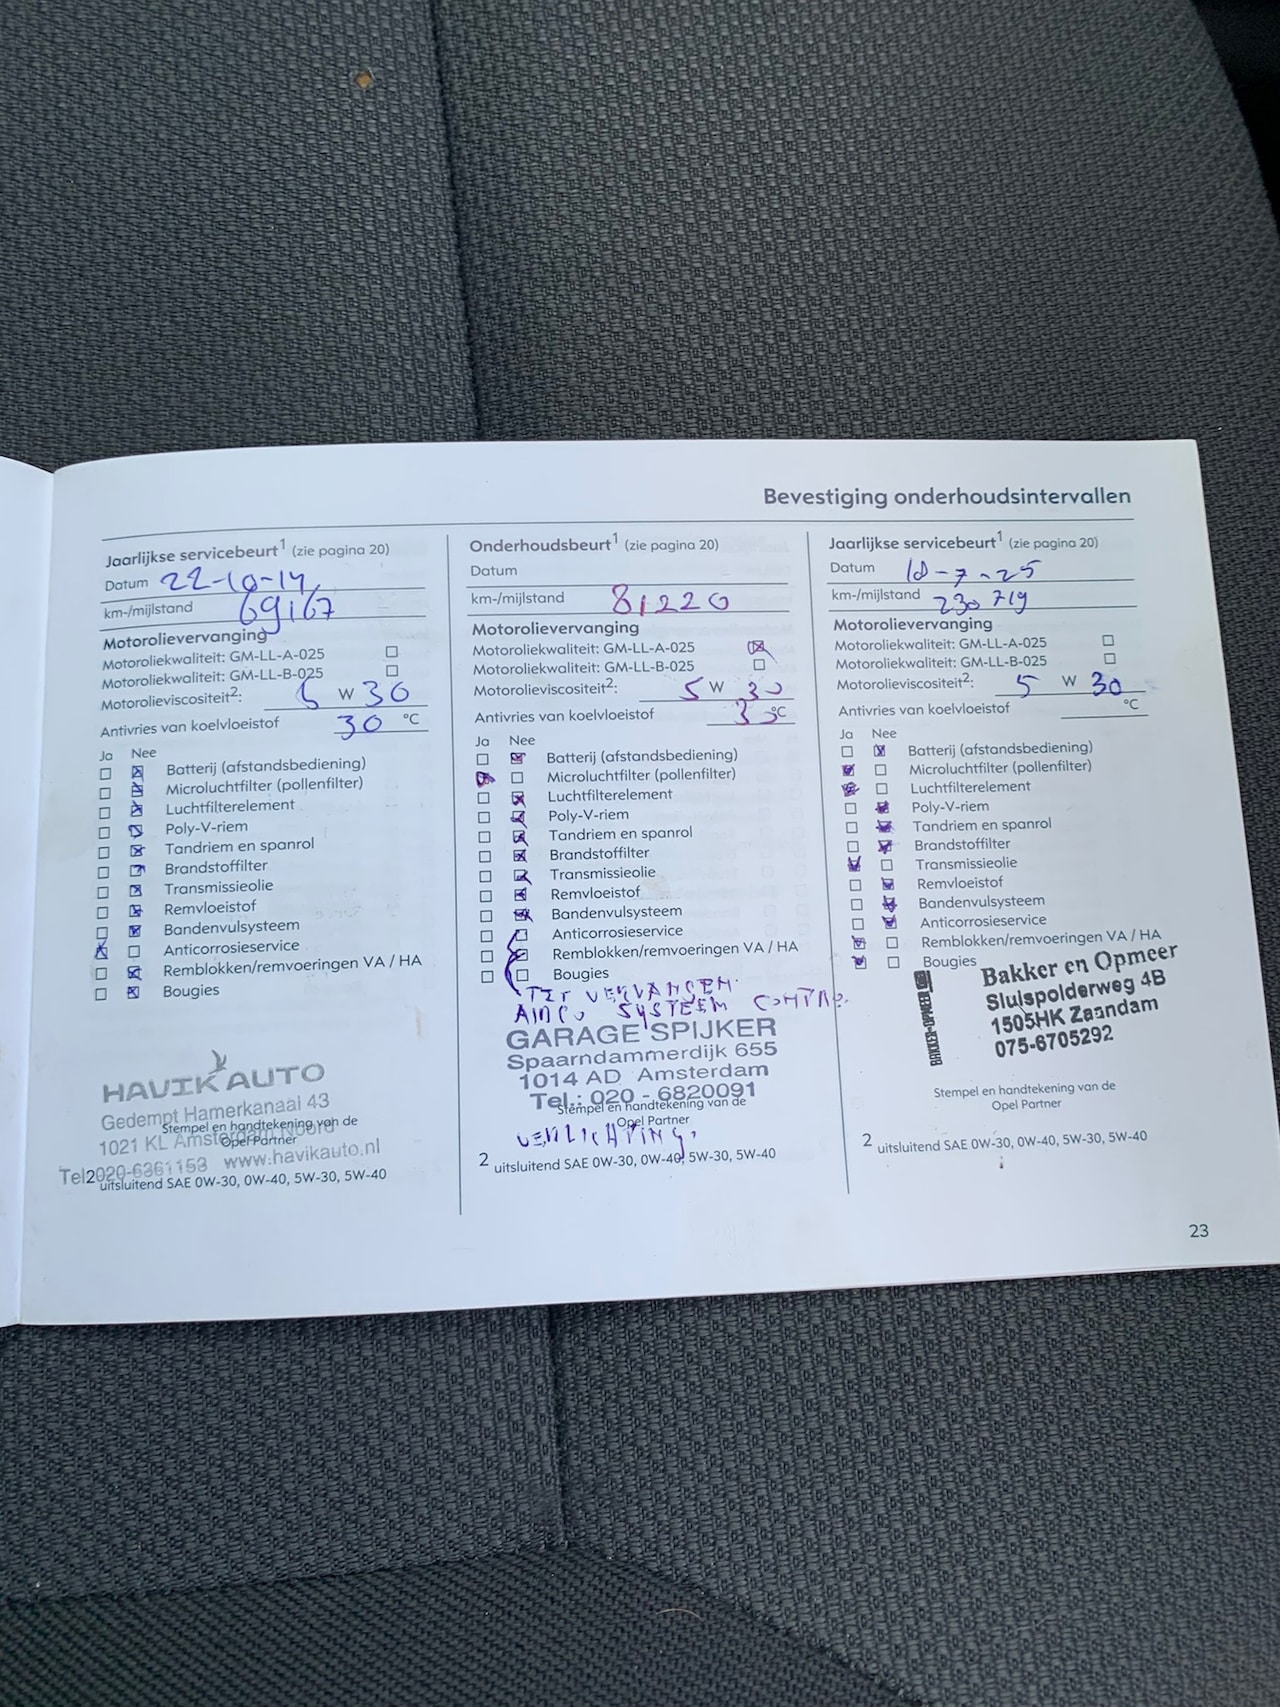 Bevestiging onderhoudsintervallen
Jaarlijkse servicebeurt1 (zie pagina 20)
Datum 22-10-14
km-/mijlstand 69167
Motorolievervanging
Motoroliekwaliteit: GM-LL-A-025
Motoroliekwaliteit: GM-LL-B-025
Motorolieviscositeit2: 5 W 30
Antivries van koelvloeistof 30 °C
Ja Nee
Batterij (afstandsbediening)
Microluchtfilter (pollenfilter)
Luchtfilterelement
Poly-V-riem
Tandriem en spanrol
Brandstoffilter
Transmissieolie
Remvloeistof
Bandenvulsysteem
Anticorrosieservice
Remblokken/remvoeringen VA / HA
Bougies
HAVIK AUTO
Gedempt Hamerkanaal 43
Stempel en handtekening van de
1021 KL Amsterdam Noord
Opel Partner
Tel 020-6361153 www.havikauto.nl
2 uitsluitend SAE 0W-30, 0W-40, 5W-30, 5W-40
Onderhoudsbeurt1 (zie pagina 20)
Datum
km-/mijlstand 81220
Motorolievervanging
Motoroliekwaliteit: GM-LL-A-025
Motoroliekwaliteit: GM-LL-B-025
Motorolieviscositeit2: 5 W 30
Antivries van koelvloeistof °C
Ja Nee
Batterij (afstandsbediening)
Microluchtfilter (pollenfilter)
Luchtfilterelement
Poly-V-riem
Tandriem en spanrol
Brandstoffilter
Transmissieolie
Remvloeistof
Bandenvulsysteem
Anticorrosieservice
Remblokken/remvoeringen VA / HA
Bougies
VERVANGEN.
AIRCO SYSTEEM
GARAGE SPIJKER
Spaarndammerdijk 655
1014 AD Amsterdam
Tel.: 020 - 6820091
Stempel en handtekening van de
Opel Partner
VERLICHTING.
2 uitsluitend SAE 0W-30, 0W-40, 5W-30, 5W-40
Jaarlijkse servicebeurt1 (zie pagina 20)
Datum 10-7-25
km-/mijlstand 230719
Motorolievervanging
Motoroliekwaliteit: GM-LL-A-025
Motoroliekwaliteit: GM-LL-B-025
Motorolieviscositeit2: 5 W 30
Antivries van koelvloeistof °C
Ja Nee
Batterij (afstandsbediening)
Microluchtfilter (pollenfilter)
Luchtfilterelement
Poly-V-riem
Tandriem en spanrol
Brandstoffilter
Transmissieolie
Remvloeistof
Bandenvulsysteem
Anticorrosieservice
Remblokken/remvoeringen VA / HA
Bougies
BAKKER-OPMEER
Bakker en Opmeer
Sluispolderweg 4B
1505HK Zaandam
075-6705292
Stempel en handtekening van de
Opel Partner
2 uitsluitend SAE 0W-30, 0W-40, 5W-30, 5W-40
23